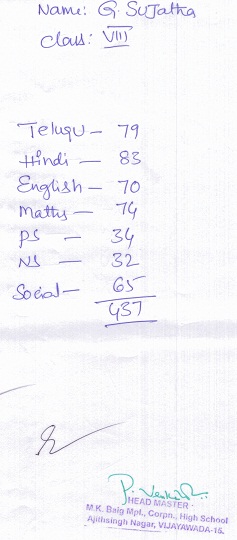 Name: G. Sujatha
Class: VIII
Telugu - 79
Hindi - 83
English - 70
Maths - 74
PS - 34
NS - 32
Social - 65
437
HEAD MASTER
M.K. Baig Mpl., Corpn., High School
Ajithsingh Nagar, VIJAYAWADA-15.